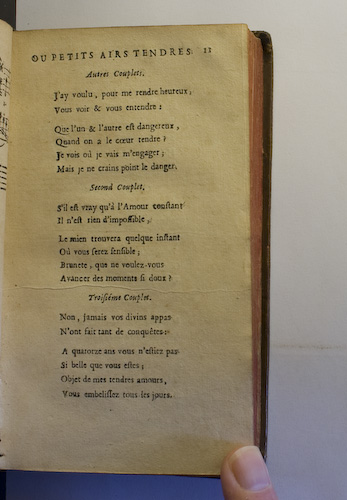 OU PETITS AIRS TENDRES. 11
Autres Couplets.
J'ay voulu, pour me rendre heureux,
Vous voir & vous entendre :
Que l'un & l'autre est dangereux,
Quand on a le cœur tendre ?
Je vois où je vais m'engager ;
Mais je ne crains point le danger.
Second Couplet.
S'il est vray qu'à l'Amour constant
Il n'est rien d'impossible,
Le mien trouvera quelque instant
Où vous serez sensible ;
Brunete, que ne voulez-vous
Avancer des moments si doux ?
Troisiéme Couplet.
Non, jamais vos divins appas
N'ont fait tant de conquêtes :
A quatorze ans vous n'estiez pas
Si belle que vous estes ;
Objet de mes tendres amours,
Vous embelissez tous les jours.